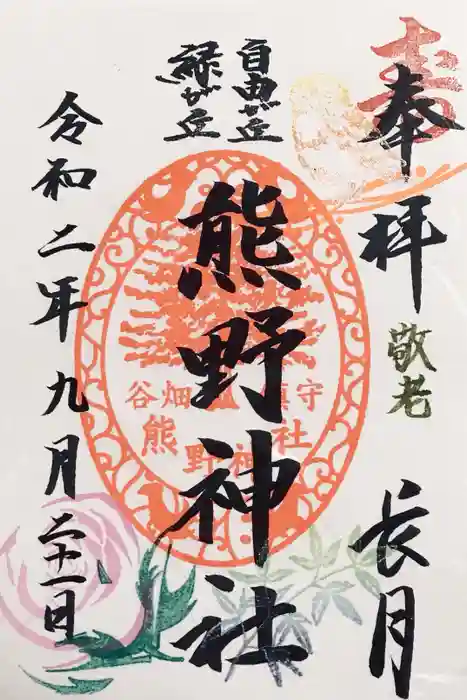 奉拝
敬老
長月
自由が丘
緑が丘
熊野神社
谷畑
鎮守
熊野神社
令和二年九月二十一日